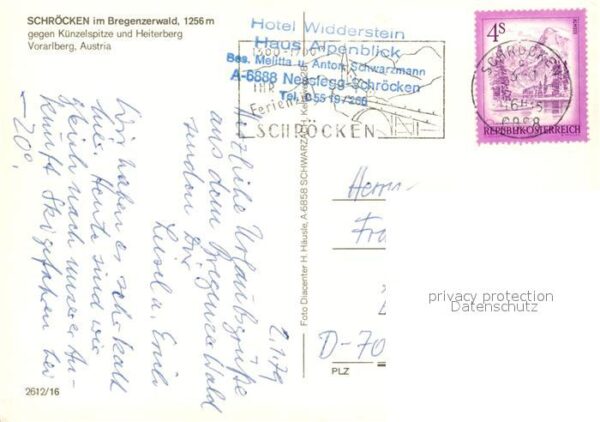 SCHRÖCKEN im Bregenzerwald, 1256 m
gegen Künzelspitze und Heiterberg
Vorarlberg, Austria
Hotel Widderstein
Haus Alpenblick
Bes. Melitta u. Anton Schwarzmann
A-6888 Nesslegg-Schröcken
Tel. 05519/266
IHR
Ferien
SCHRÖCKEN
4S
REPUBLIK ÖSTERREICH
SCHRÖCKEN
6888
Herzliche Urlaubsgrüße
aus dem Bregenzer Wald
senden Dir
Luisel u. Erich
2.1.79
Wir haben es sehr kalt
hier. Heute sind wir
gleich nach unserer An-
kunft Skigefahren bei
-20°.
Foto Diacenter H. Häusle, A-6858 SCHWARZACH
Herrn
D-70
PLZ
2612/16
privacy protection
Datenschutz